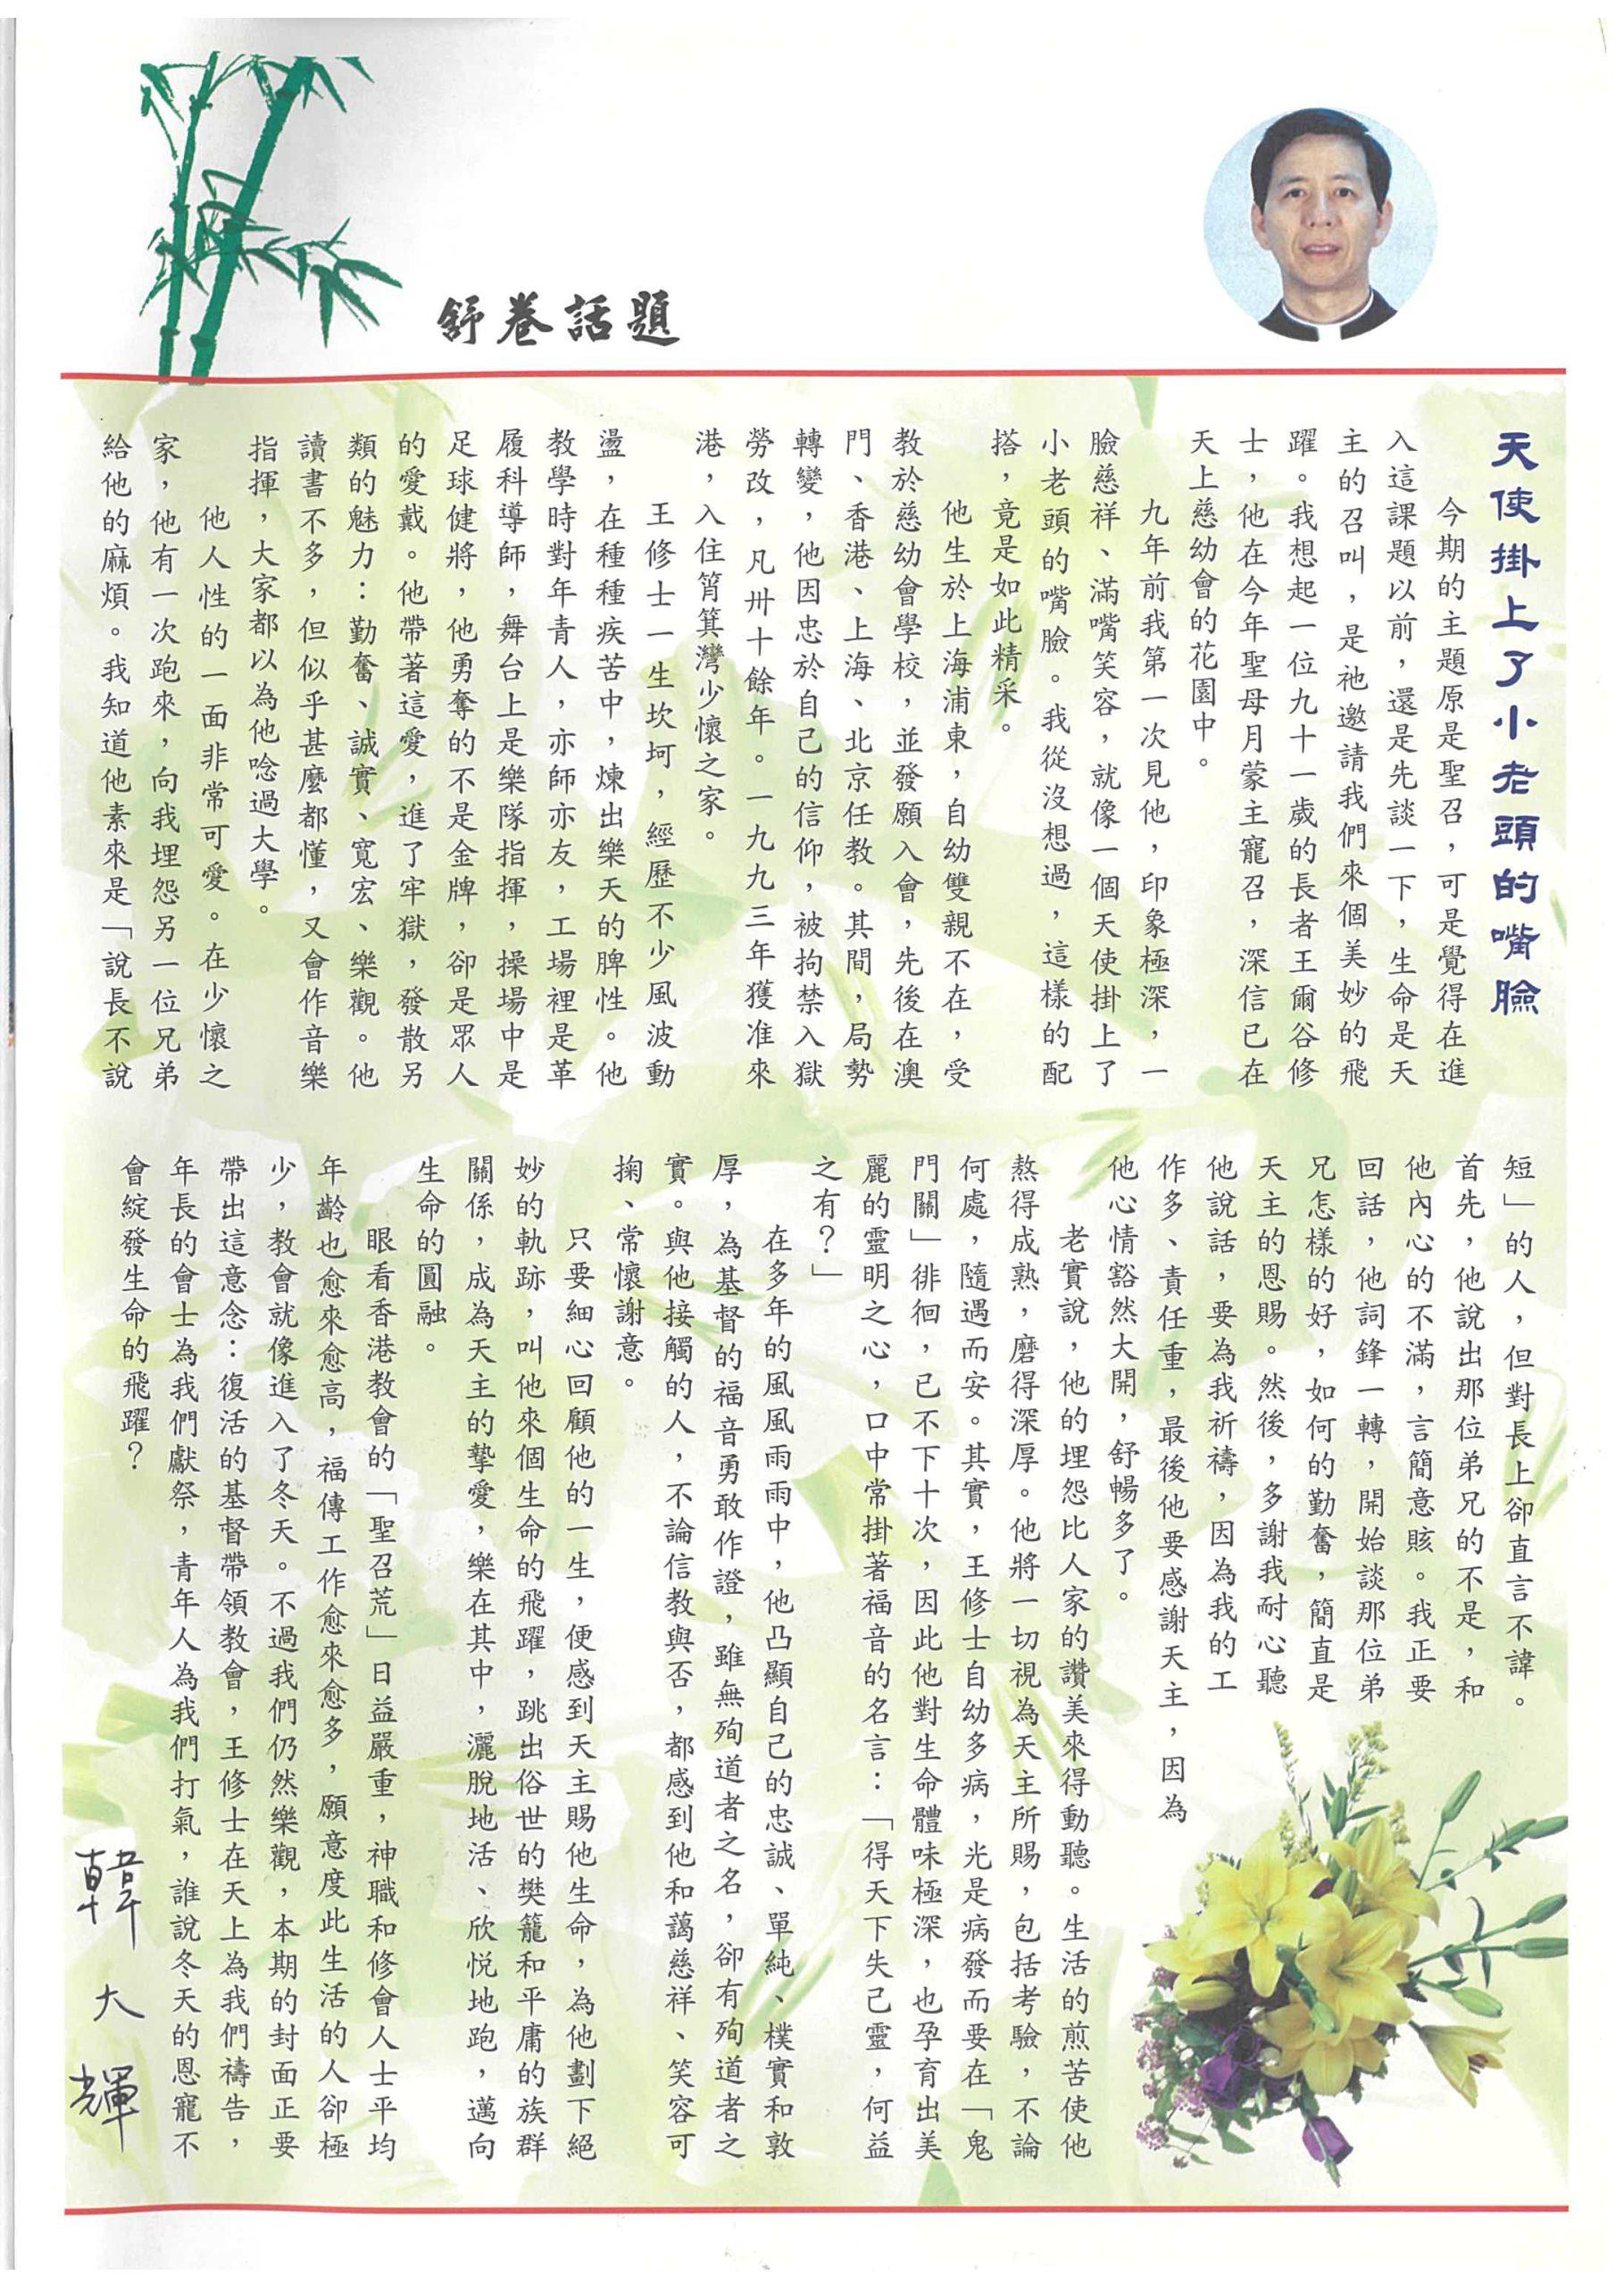 舒卷話題
天使掛上了小老頭的嘴臉
今期的主題原是聖召，可是覺得在進
入這課題以前，還是先談一下，生命是天
主的召叫，是祂邀請我們來個美妙的飛
躍。我想起一位九十一歲的長者王爾谷修
士，他在今年聖母月蒙主寵召，深信已在
天上慈幼會的花園中。
九年前我第一次見他，印象極深，一
臉慈祥、滿嘴笑容，就像一個天使掛上了
小老頭的嘴臉。我從沒想過，這樣的配
搭，竟是如此精采。
他生於上海浦東，自幼雙親不在，受
教於慈幼會學校，並發願入會，先後在澳
門、香港、上海、北京任教。其間，局勢
轉變，他因忠於自己的信仰，被拘禁入獄
勞改，凡卅十餘年。一九九三年獲准來
港，入住筲箕灣少懷之家。
王修士一生坎坷，經歷不少風波動
盪，在種種疾苦中，煉出樂天的脾性。他
教學時對年青人，亦師亦友，工場裡是革
履科導師，舞台上是樂隊指揮，操場中是
足球健將，他勇奪的不是金牌，卻是眾人
的愛戴。他帶著這愛，進了牢獄，發散另
類的魅力：勤奮、誠實、寬宏、樂觀。他
讀書不多，但似乎甚麼都懂，又會作音樂
指揮，大家都以為他唸過大學。
他人性的一面非常可愛。在少懷之
家，他有一次跑來，向我埋怨另一位兄弟
給他的麻煩。我知道他素來是「說長不說
短」的人，但對長上卻直言不諱。
首先，他說出那位弟兄的不是，和
他內心的不滿，言簡意賅。我正要
回話，他詞鋒一轉，開始談那位弟
兄怎樣的好，如何的勤奮，簡直是
天主的恩賜。然後，多謝我耐心聽
他說話，要為我祈禱，因為我的工
作多、責任重，最後他要感謝天主，因為
他心情豁然大開，舒暢多了。
老實說，他的埋怨比人家的讚美來得動聽。生活的煎苦使他
熬得成熟，磨得深厚。他將一切視為天主所賜，包括考驗，不論
何處，隨遇而安。其實，王修士自幼多病，光是病發而要在「鬼
門關」徘徊，已不下十次，因此他對生命體味極深，也孕育出美
麗的靈明之心，口中常掛著福音的名言：「得天下失己靈，何益
之有？」
在多年的風風雨雨中，他凸顯自己的忠誠、單純、樸實和敦
厚，為基督的福音勇敢作證，雖無殉道者之名，卻有殉道者之
實。與他接觸的人，不論信教與否，都感到他和藹慈祥、笑容可
掬、常懷謝意。
只要細心回顧他的一生，便感到天主賜他生命，為他劃下絕
妙的軌跡，叫他來個生命的飛躍，跳出俗世的樊籠和平庸的族群
關係，成為天主的摯愛，樂在其中，灑脫地活、欣悅地跑，邁向
生命的圓融。
眼看香港教會的「聖召荒」日益嚴重，神職和修會人士平均
年齡也愈來愈高，福傳工作愈來愈多，願意度此生活的人卻極
少，教會就像進入了冬天。不過我們仍然樂觀，本期的封面正要
帶出這意念：復活的基督帶領教會，王修士在天上為我們禱告，
年長的會士為我們獻祭，青年人為我們打氣，誰說冬天的恩寵不
會綻發生命的飛躍？
韓大輝